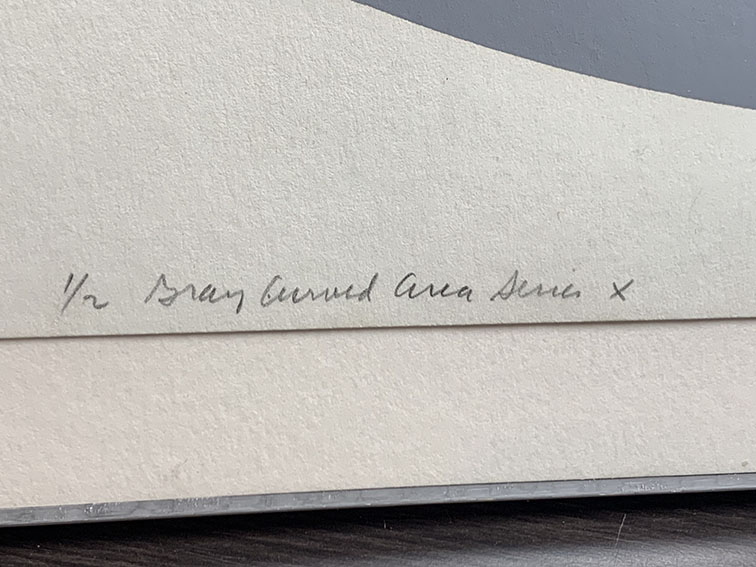 1/2 Gray Curved Area Series X